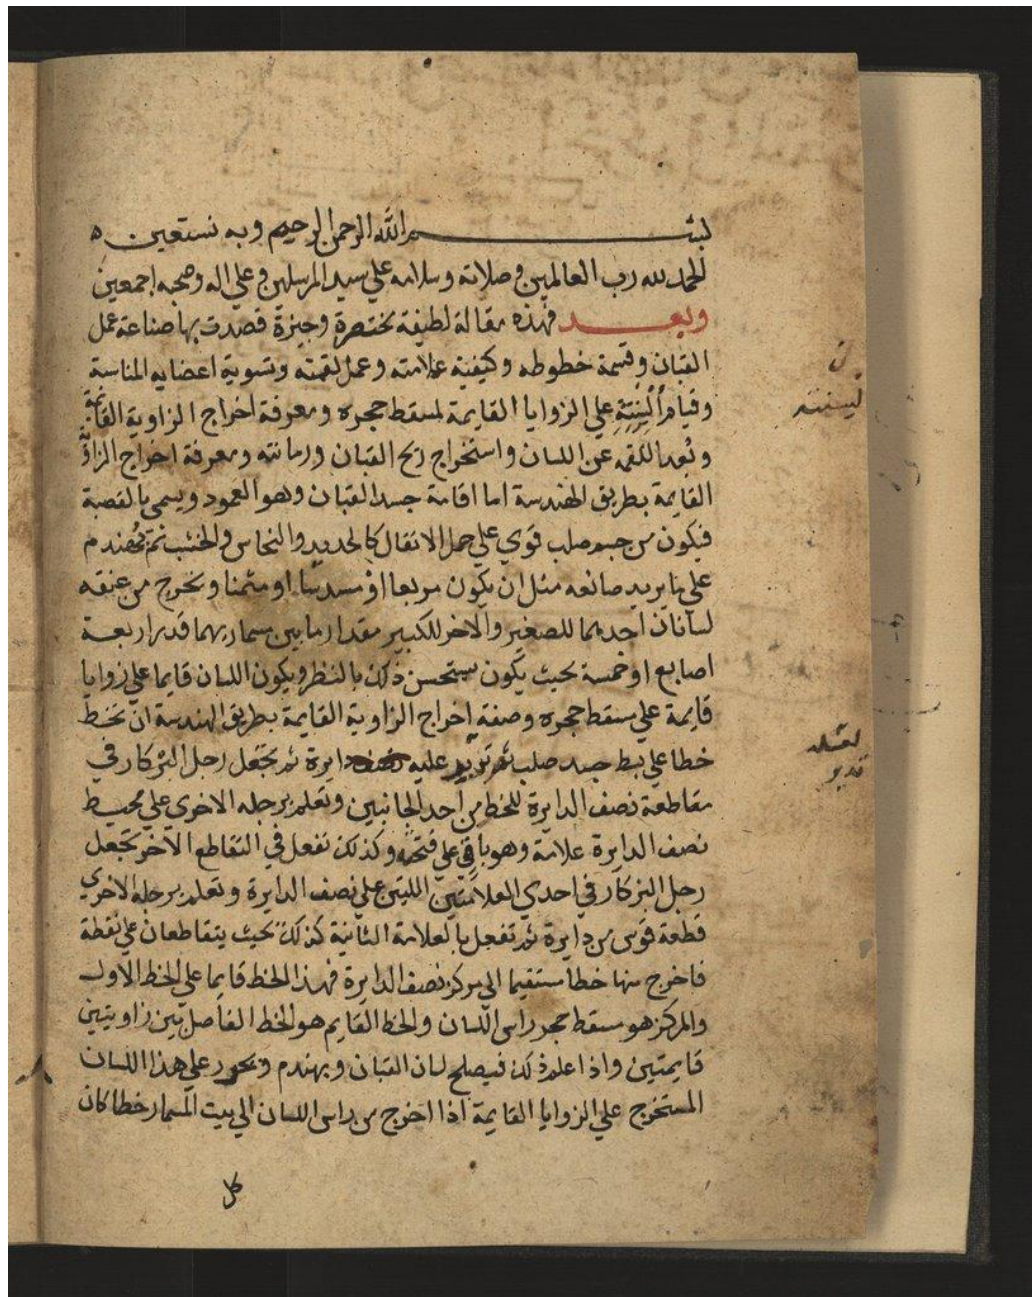 بسم الله الرحمن الرحيم وبه نستعين ه
الحمد لله رب العالمين وصلاته وسلامه علي سيد المرسلين وعلي اله وصحبه اجمعين
وبعد فهذه مقالة لطيفة مختصرة وجيزة قصدت بها صناعة عمل
القبان وقسمة خطوطه وكيفية علامته وعمل لقمته وتسوية اعضايه المناسبة
وقيام علي الزوايا القايمة لمسقط حجره ومعرفة اخراج الزاوية القايمة
وبعد اللقمه عن اللسان واستخراج ربح القبان ورمانته ومعرفة اخراج الزاوية
القايمة بطريق الهندسة اما اقامة جسد القبان وهو العمود ويسمي بالقصبة
فيكون من جسم صلب قوي علي حمل الاثقال كالحديد والنحاس والخشب ثم يهندم
علي ما يريد صانعه مثل ان يكون مربعا او مسدسا او مثمنا ويخرج من عنقه
لسانان احديهما للصغير والاخر للكبير مقدار ما بين مسماريهما قدر اربعة
اصابع او خمسة بحيث يكون يستحسن ذلك بالنظر ويكون اللسان قايما علي زوايا
قايمة علي مسقط حجره وصفة اخراج الزاوية القايمة بطريق الهندسة ان تخط
خطا علي بسط جسد صلب ثم تدير عليه نصف دايرة ثم تجعل رجل البركار في
مقاطعة نصف الدايرة للخط من احد الجانبين وتعلم برجله الاخري علي محيط
نصف الدايرة علامة وهو باق علي فتحه وكذلك تفعل في التقاطع الاخر تجعل
رجل البركار في احدي العلامتين اللتين علي نصف الدايرة وتعلم برجله الاخري
قطعة قوس من دايرة ثم تفعل بالعلامة الثانية كذلك بحيث يتقاطعان علي نقطة
فاخرج منها خطا مستقيما الي مركز نصف الدايرة فهذا الخط قايما علي الخط الاول
والمركز هو مسقط حجر راس اللسان والخط القايم هو الخط الفاصل بين زاويتين
قايمتين واذا علم ذلك فيصلح لسان القبان ويهندم ويحرر علي هذا اللسان
المستخرج علي الزوايا القايمة اذا اخرج من راس اللسان الي بيت المسمار خطا كان